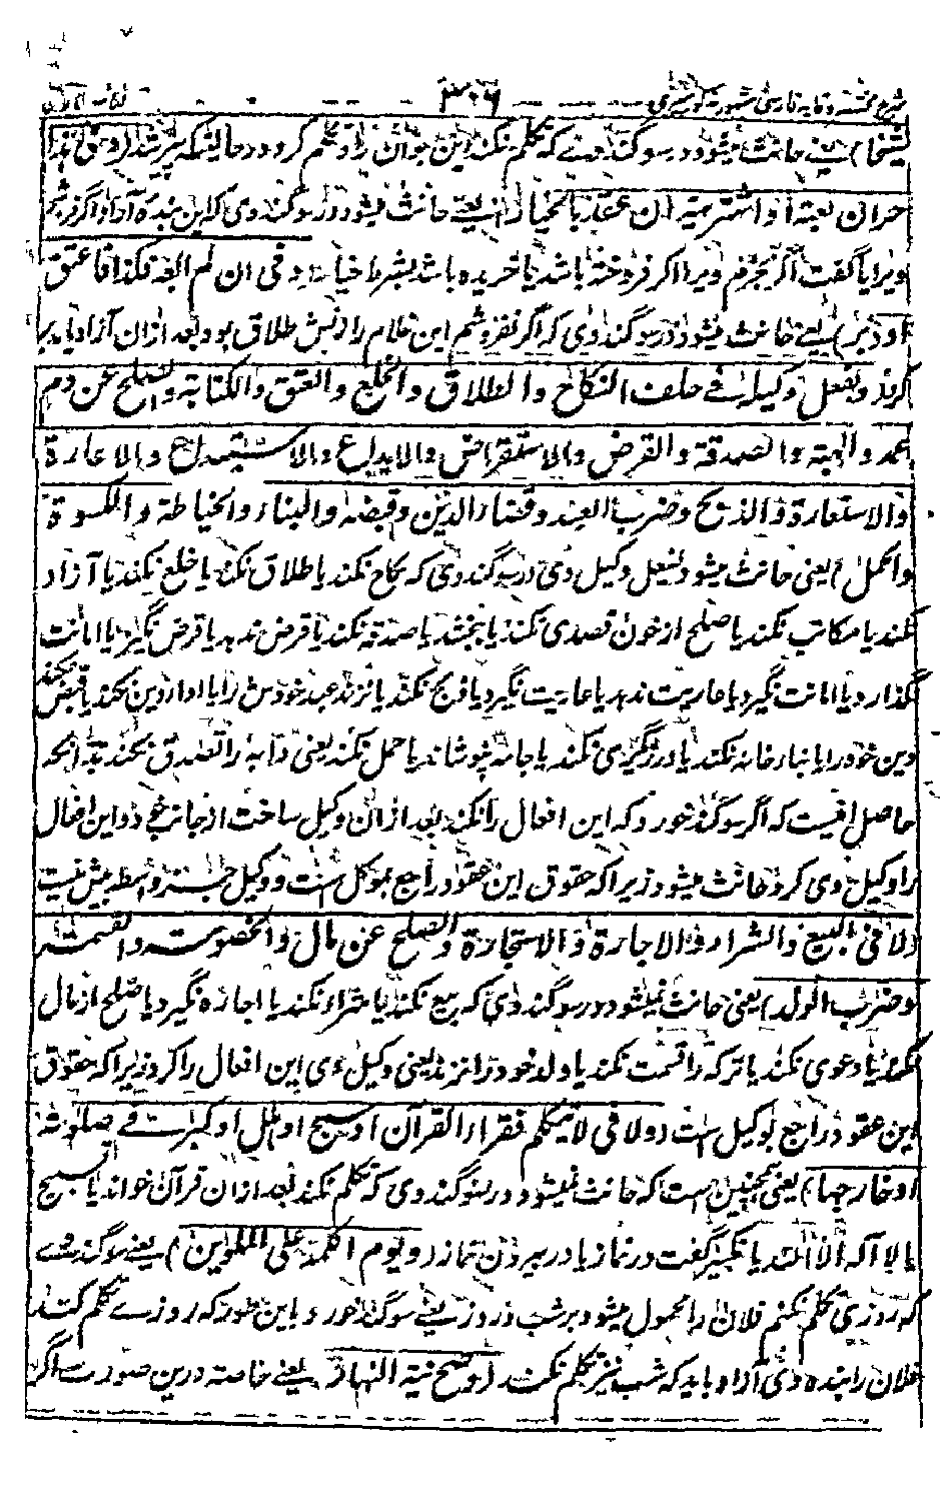 شرح مختصر وقایه فارسی ۳۰۶ کتاب الایمان
شیخا) یعنی حانث میشود در سوگند وی که تکلم نکند این جوان را و تکلم کرد در حالیکه پیر شد (و فی هذا
حر ان بعته او اشتریته ان عقد بالخیار) یعنی حانث میشود در سوگند وی که این بنده آزاد اگر فروشم
ویرا یا گفت اگر بخرم ویرا اگر فروخته باشد یا خریده باشد بشرط خیار (و فی ان لم ابعه فکذا فاعتق
او دبر) یعنی حانث میشود در سوگند وی که اگر نفروشم این غلام را زنش طلاق بود بعد ازان آزاد یا مدبر
کرد (و بفعل وکیله فی حلف النکاح والطلاق والخلع والعتق والکتابة والصلح عن دم
عمد والهبة والصدقة والقرض والاستقراض والایداع والاستیداع والاعارة
والاستعارة والذبح وضرب العبد وقضاء الدین وقبضه والبناء والخیاطة والکسوة
والحمل) یعنی حانث میشود بفعل وکیل وی در سوگند وی که نکاح نکند یا طلاق نکند یا خلع نکند یا آزاد
نکند یا مکاتب نکند یا صلح از خون قصدی نکند یا نبخشد یا صدقه نکند یا قرض ندهد یا قرض نگیرد یا امانت
نگذارد یا امانت نگیرد یا عاریت ندهد یا عاریت نگیرد یا ذبح نکند یا نزند عبد خودش را یا ادا دین نکند یا قبض نکند
دین خود را یا بناء خانه نکند یا درزیگری نکند یا جامه نپوشاند یا حمل نکند یعنی دابه را تصدق نکند بته الحد
حاصل اینست که اگر سوگند خورد که این افعال را نکند بعد ازان وکیل ساخت از جانب خود و این افعال
را وکیل وی کرد حانث میشود زیرا که حقوق این عقود راجع بموکل است و وکیل جز واسطه بیش نیست
(لا فی البیع والشراء والاجارة والاستجارة والصلح عن مال والخصومة والقسمة
وضرب الولد) یعنی حانث نمیشود در سوگند وی که بیع نکند یا شراء نکند یا اجاره نگیرد یا صلح از مال
نکند یا دعوی نکند یا ترکه را قسمت نکند یا ولد خود را نزند یعنی وکیل وی این افعال را کرد زیرا که حقوق
این عقود راجع بوکیل است (ولا فی لا یتکلم فقرأ القرآن او سبح او هلل او کبر فی صلوته
او خارجها) یعنی همچنین است که حانث نمیشود در سوگند وی که تکلم نکند بعد ازان قرآن خواند یا تسبیح
یا لا اله الا الله یا تکبیر گفت در نماز یا در بیرون نماز (و یوم اکلمه علی الملوین) یعنی سوگند وی
که روزی تکلم نکنم فلان را محمول میشود بر شب و روز یعنی سوگند خورد باین طور که روزی تکلم کند
فلان را بنده وی آزاد باید که شب نیز تکلم نکند (وصح نیة النهار) یعنی خاصة درین صورت اگر